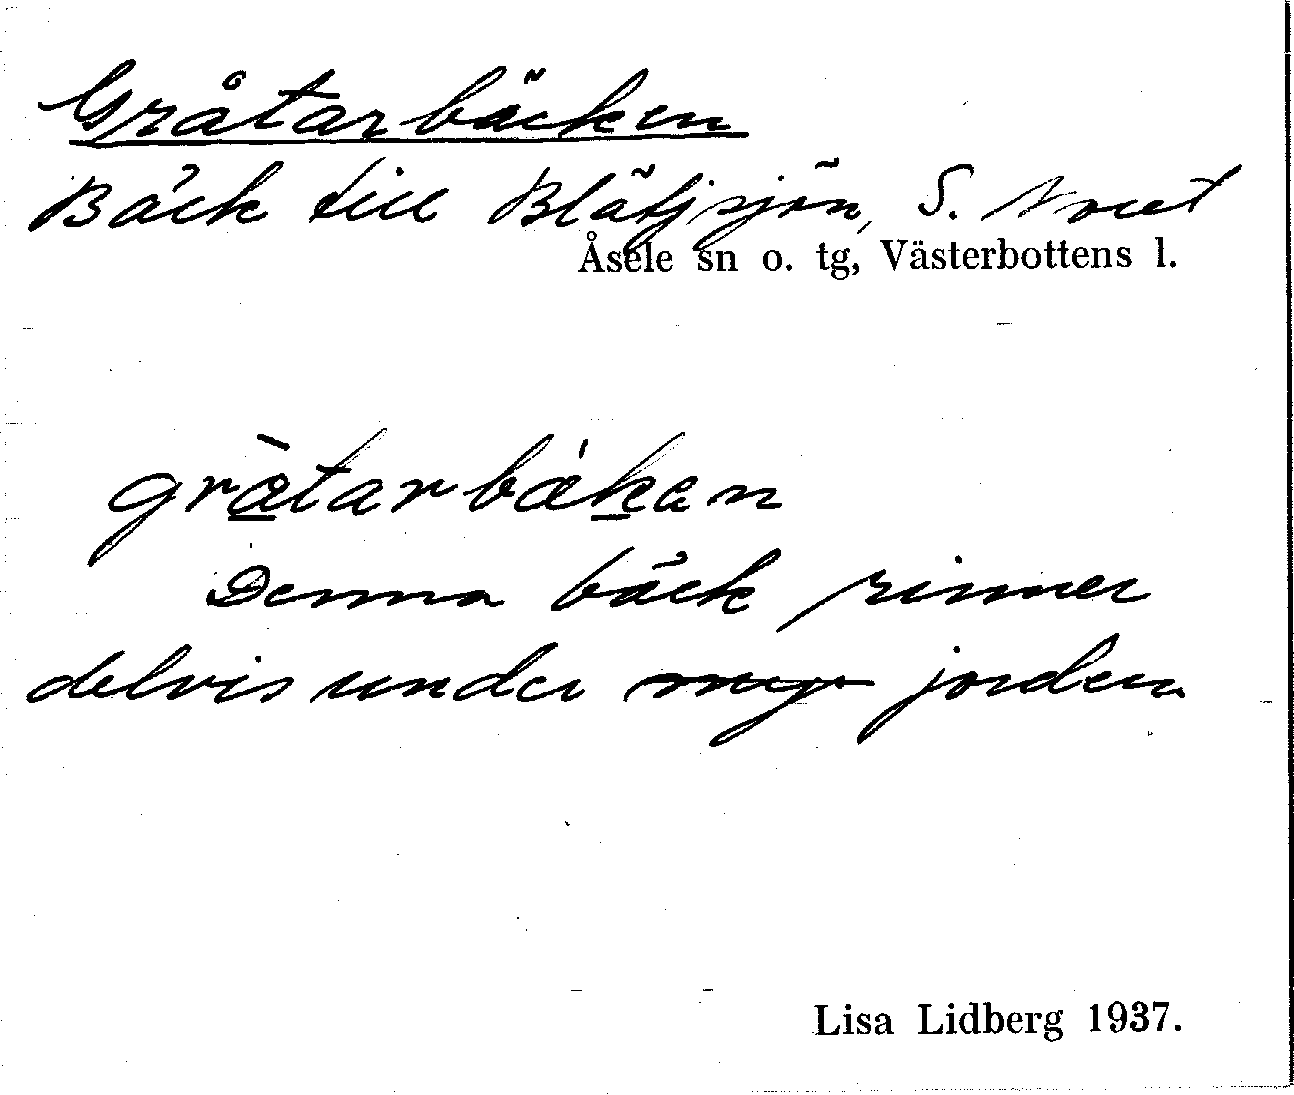 Gråtarbäcken
Bäck till Blätjsjön, S.
Åsele sn o. tg, Västerbottens l.
gràtarbækan
Denna bäck rinner
delvis under jorden
Lisa Lidberg 1937.